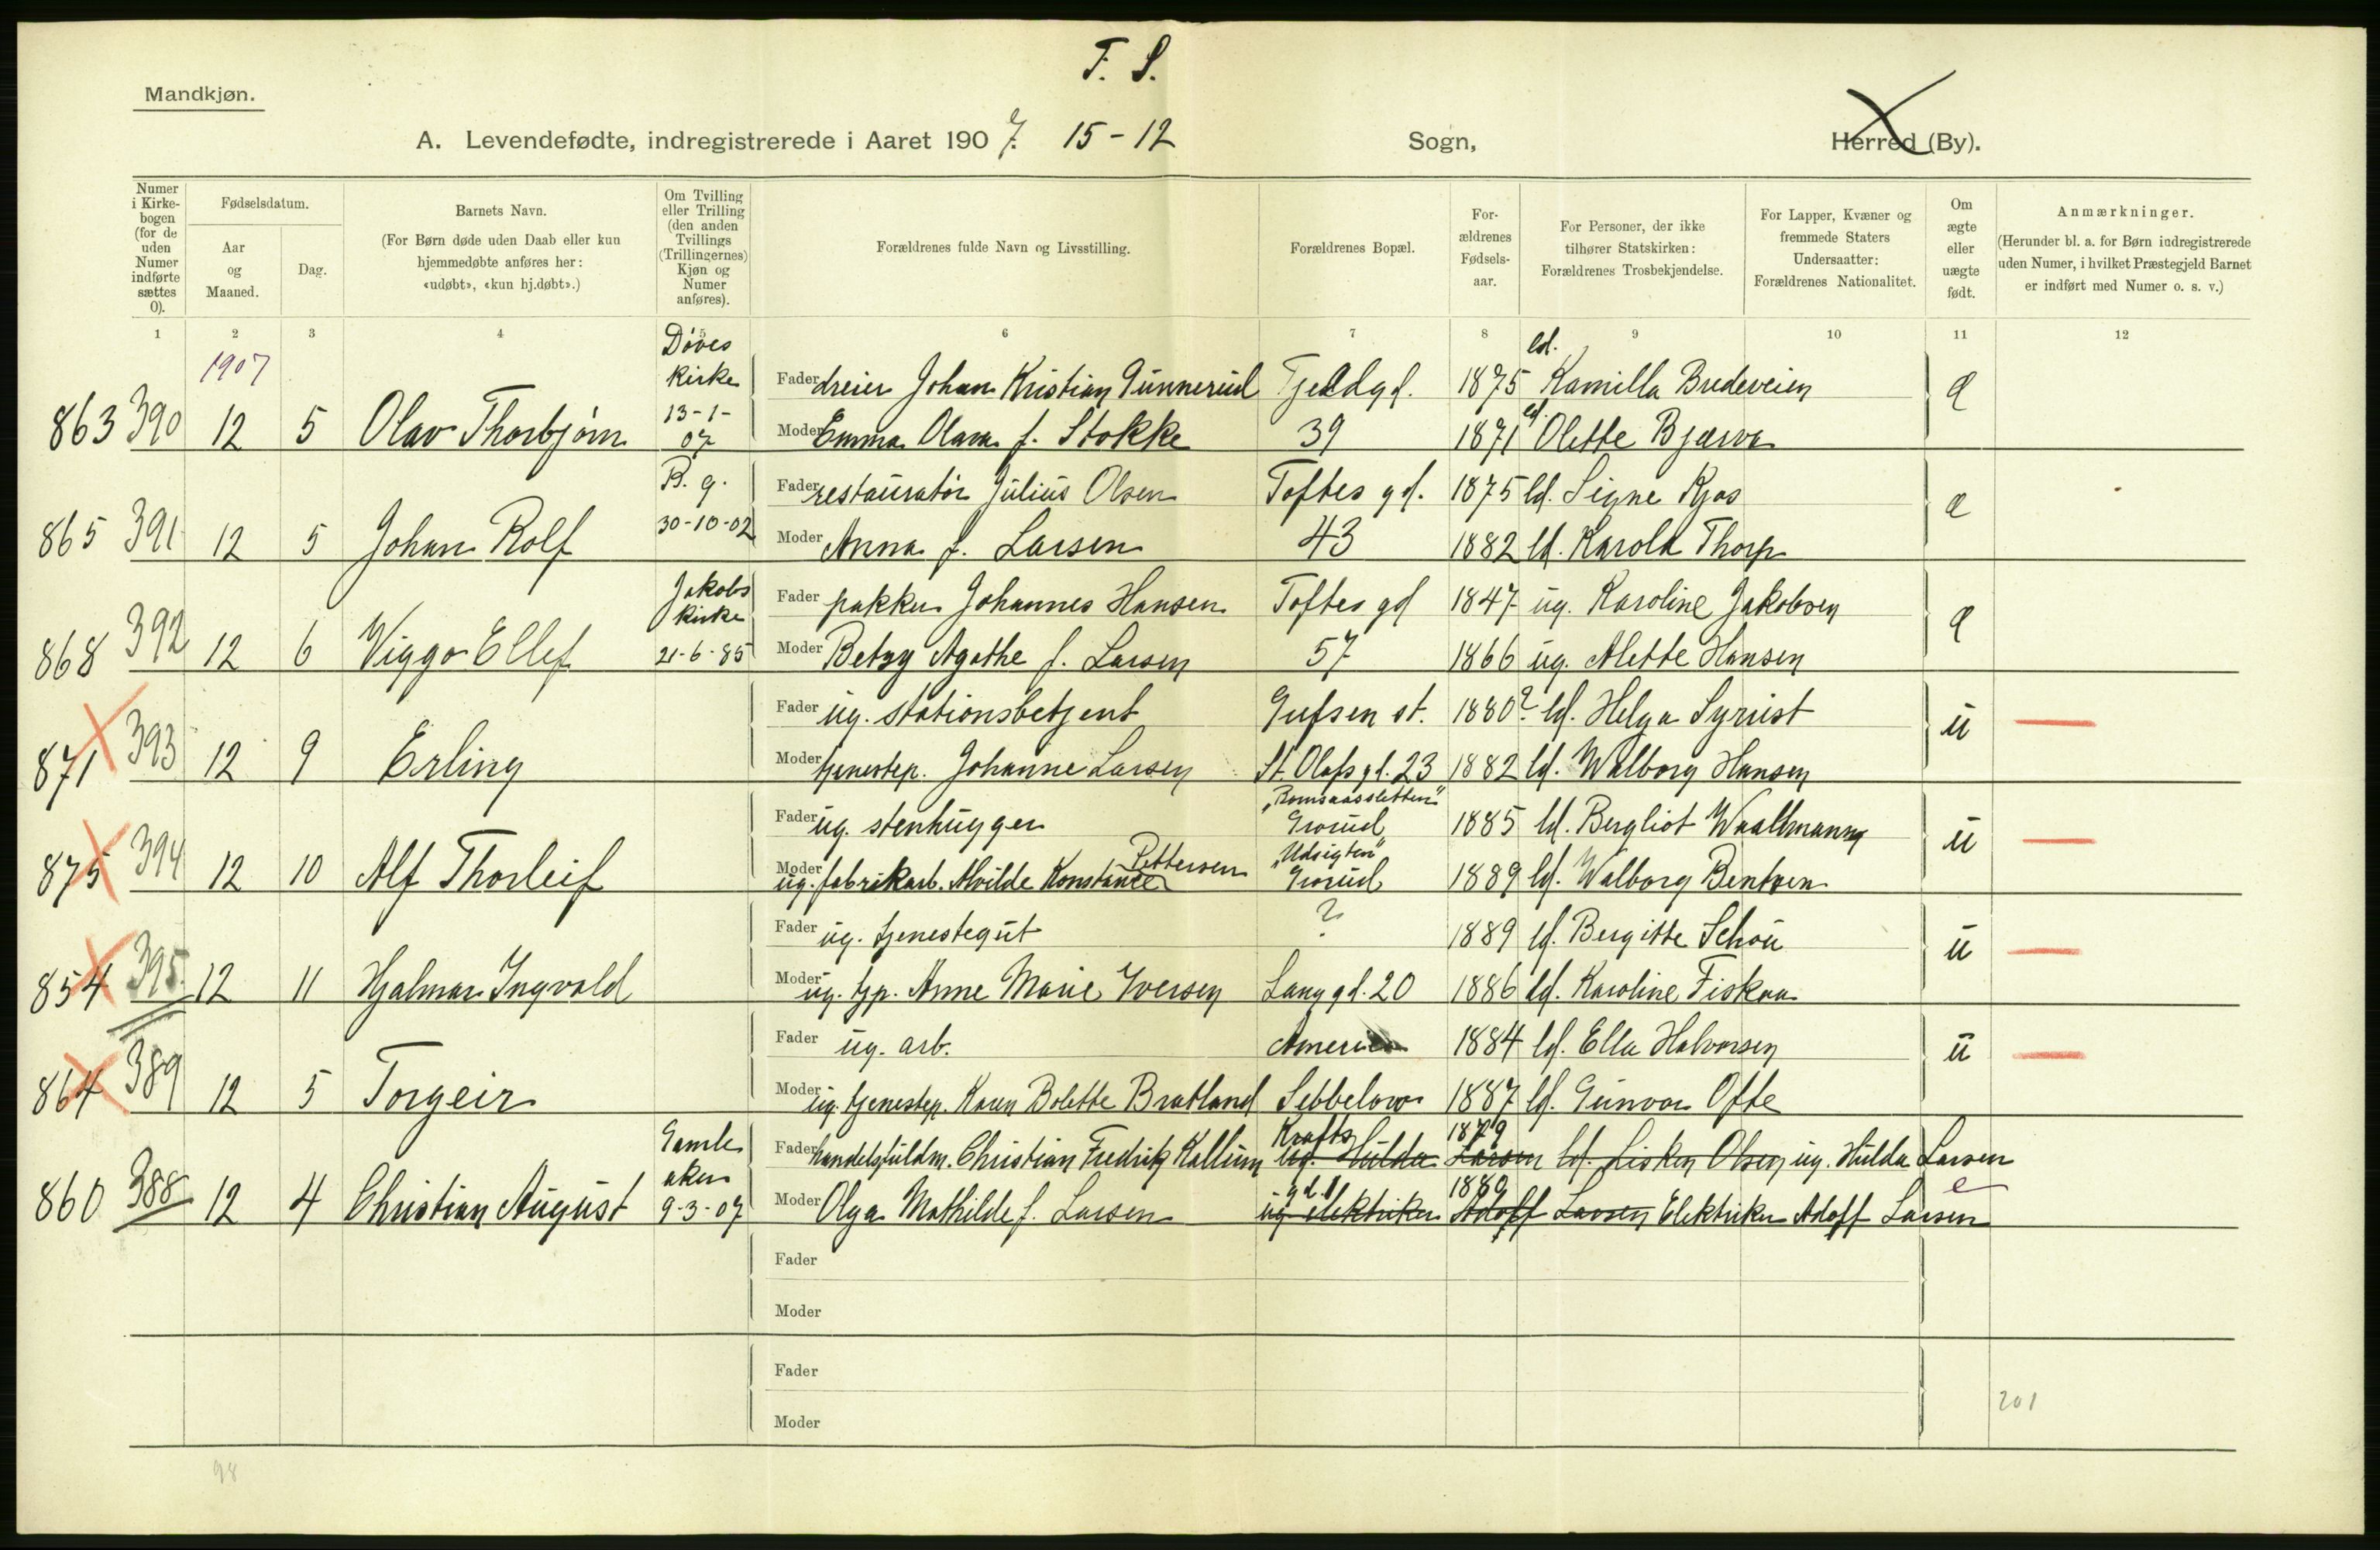 F. S.
Mandkjøn.
A. Levendefødte, indregistrerede i Aaret 1907. 15-12 Sogn, Herred (By).
Numer i Kirke-bogen (for de uden Numer indførte sættes 0).
Fødselsdatum.
Aar og Maaned.
Dag.
Barnets Navn.
(For Børn døde uden Daab eller kun hjemmedøbte anføres her: «udøbt», «kun hj.døbt».)
Om Tvilling eller Trilling (den anden Tvillings (Trillingernes) Kjøn og Numer anføres).
Forældrenes fulde Navn og Livsstilling.
Forældrenes Bopæl.
For-ældrenes Fødsels-aar.
For Personer, der ikke tilhører Statskirken: Forældrenes Trosbekjendelse.
For Lapper, Kvæner og fremmede Staters Undersaatter: Forældrenes Nationalitet.
Om ægte eller uægte født.
Anmærkninger.
(Herunder bl. a. for Børn indregistrerede uden Numer, i hvilket Præstegjeld Barnet er indført med Numer o. s. v.)
1 2 3 4 5 6 7 8 9 10 11 12
1907
Døves kirke
Fader dreier Johan Kristian Gunnerud Tjeldgd. 1875 ld. Kamilla Bredeveien
863 390 12 5 Olav Thorbjørn 13-1-07 Moder Emma Olava f. Stokke 39 1871 ld. Olette Bjærva
Fader restauratør Julius Olsen Toftes gd. 1875 ld. Signe Kjos
865 391 12 5 Johan Rolf 30-10-02 Moder Anna f. Larsen 43 1882 ld. Karola Thorp
Jakobs kirke
Fader pakker Johannes Hansen Toftes gd 1847 ug. Karoline Jakobsen
868 392 12 6 Viggo Ellef 21-6-85 Moder Betzy Agathe f. Larsen 57 1866 ug. Alette Hansen
Fader ug. stationsbetjent Gufsen st. 1880? ld. Helga Syrist u
871 393 12 9 Erling Moder tjenestep. Johanne Larsen St. Olafs gd. 23 1882 ld. Walborg Hansen
"Romsaassletten"
Fader ug. stenhugger Grorud 1885 ld. Bergliot Waallmanng u
"Udsigten"
875 394 12 10 Alf Thorleif Moder ug. fabrikarb. Alvilde Konstance Pettersen Grorud 1889 ld. Walborg Bentsen
Fader ug. tjenestegut ? 1889 ld. Bergitte Schou u
854 395 12 11 Hjalmar Ingvald Moder ug. tjp. Anne Marie Iversen Langgd. 20 1886 ld. Karoline Fiskaa
Fader ug. arb. Amerika 1884 ld. Ella Halvorsen u
864 389 12 5 Torgeir Moder ug. tjenestep. Karen Bolette Bratland Sebbelows 1887 ld. Gunvor Ofte
Gamle aker
Fader handelsfuldm. Christian Fredrik Kallum Krafts 1879 ug. Hulda Larsen ld. Lisken Olsen ug. Hulda Larsen
860 388 12 4 Christian August 9-3-07 Moder Olga Mathilde f. Larsen gd. 1 1880 ug elektriker Adolf Larsen Elektriker Adolf Larsen
Fader
Moder
Fader
Moder
201
98